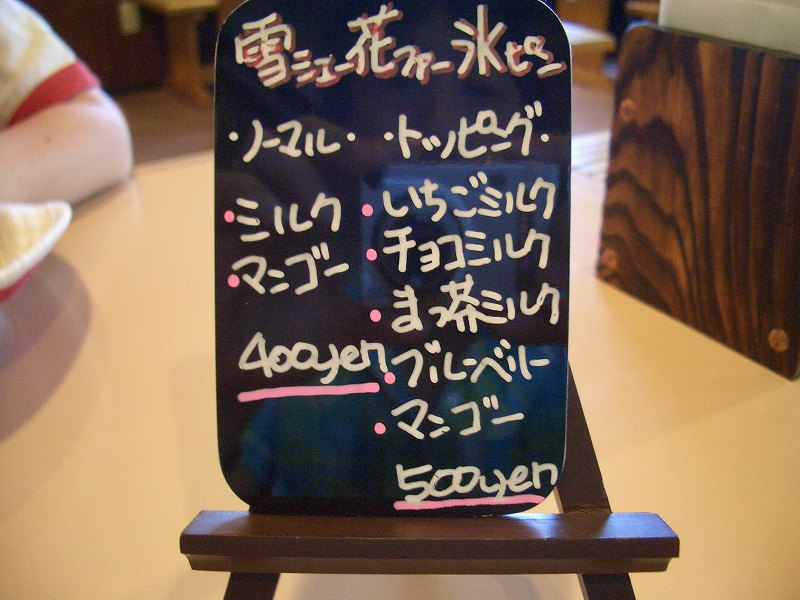 雪シュー花ファー氷ピン
・ノーマル・
ミルク
マンゴー
400yen
・トッピング・
いちごミルク
チョコミルク
まっ茶ミルク
ブルーベリー
マンゴー
500yen